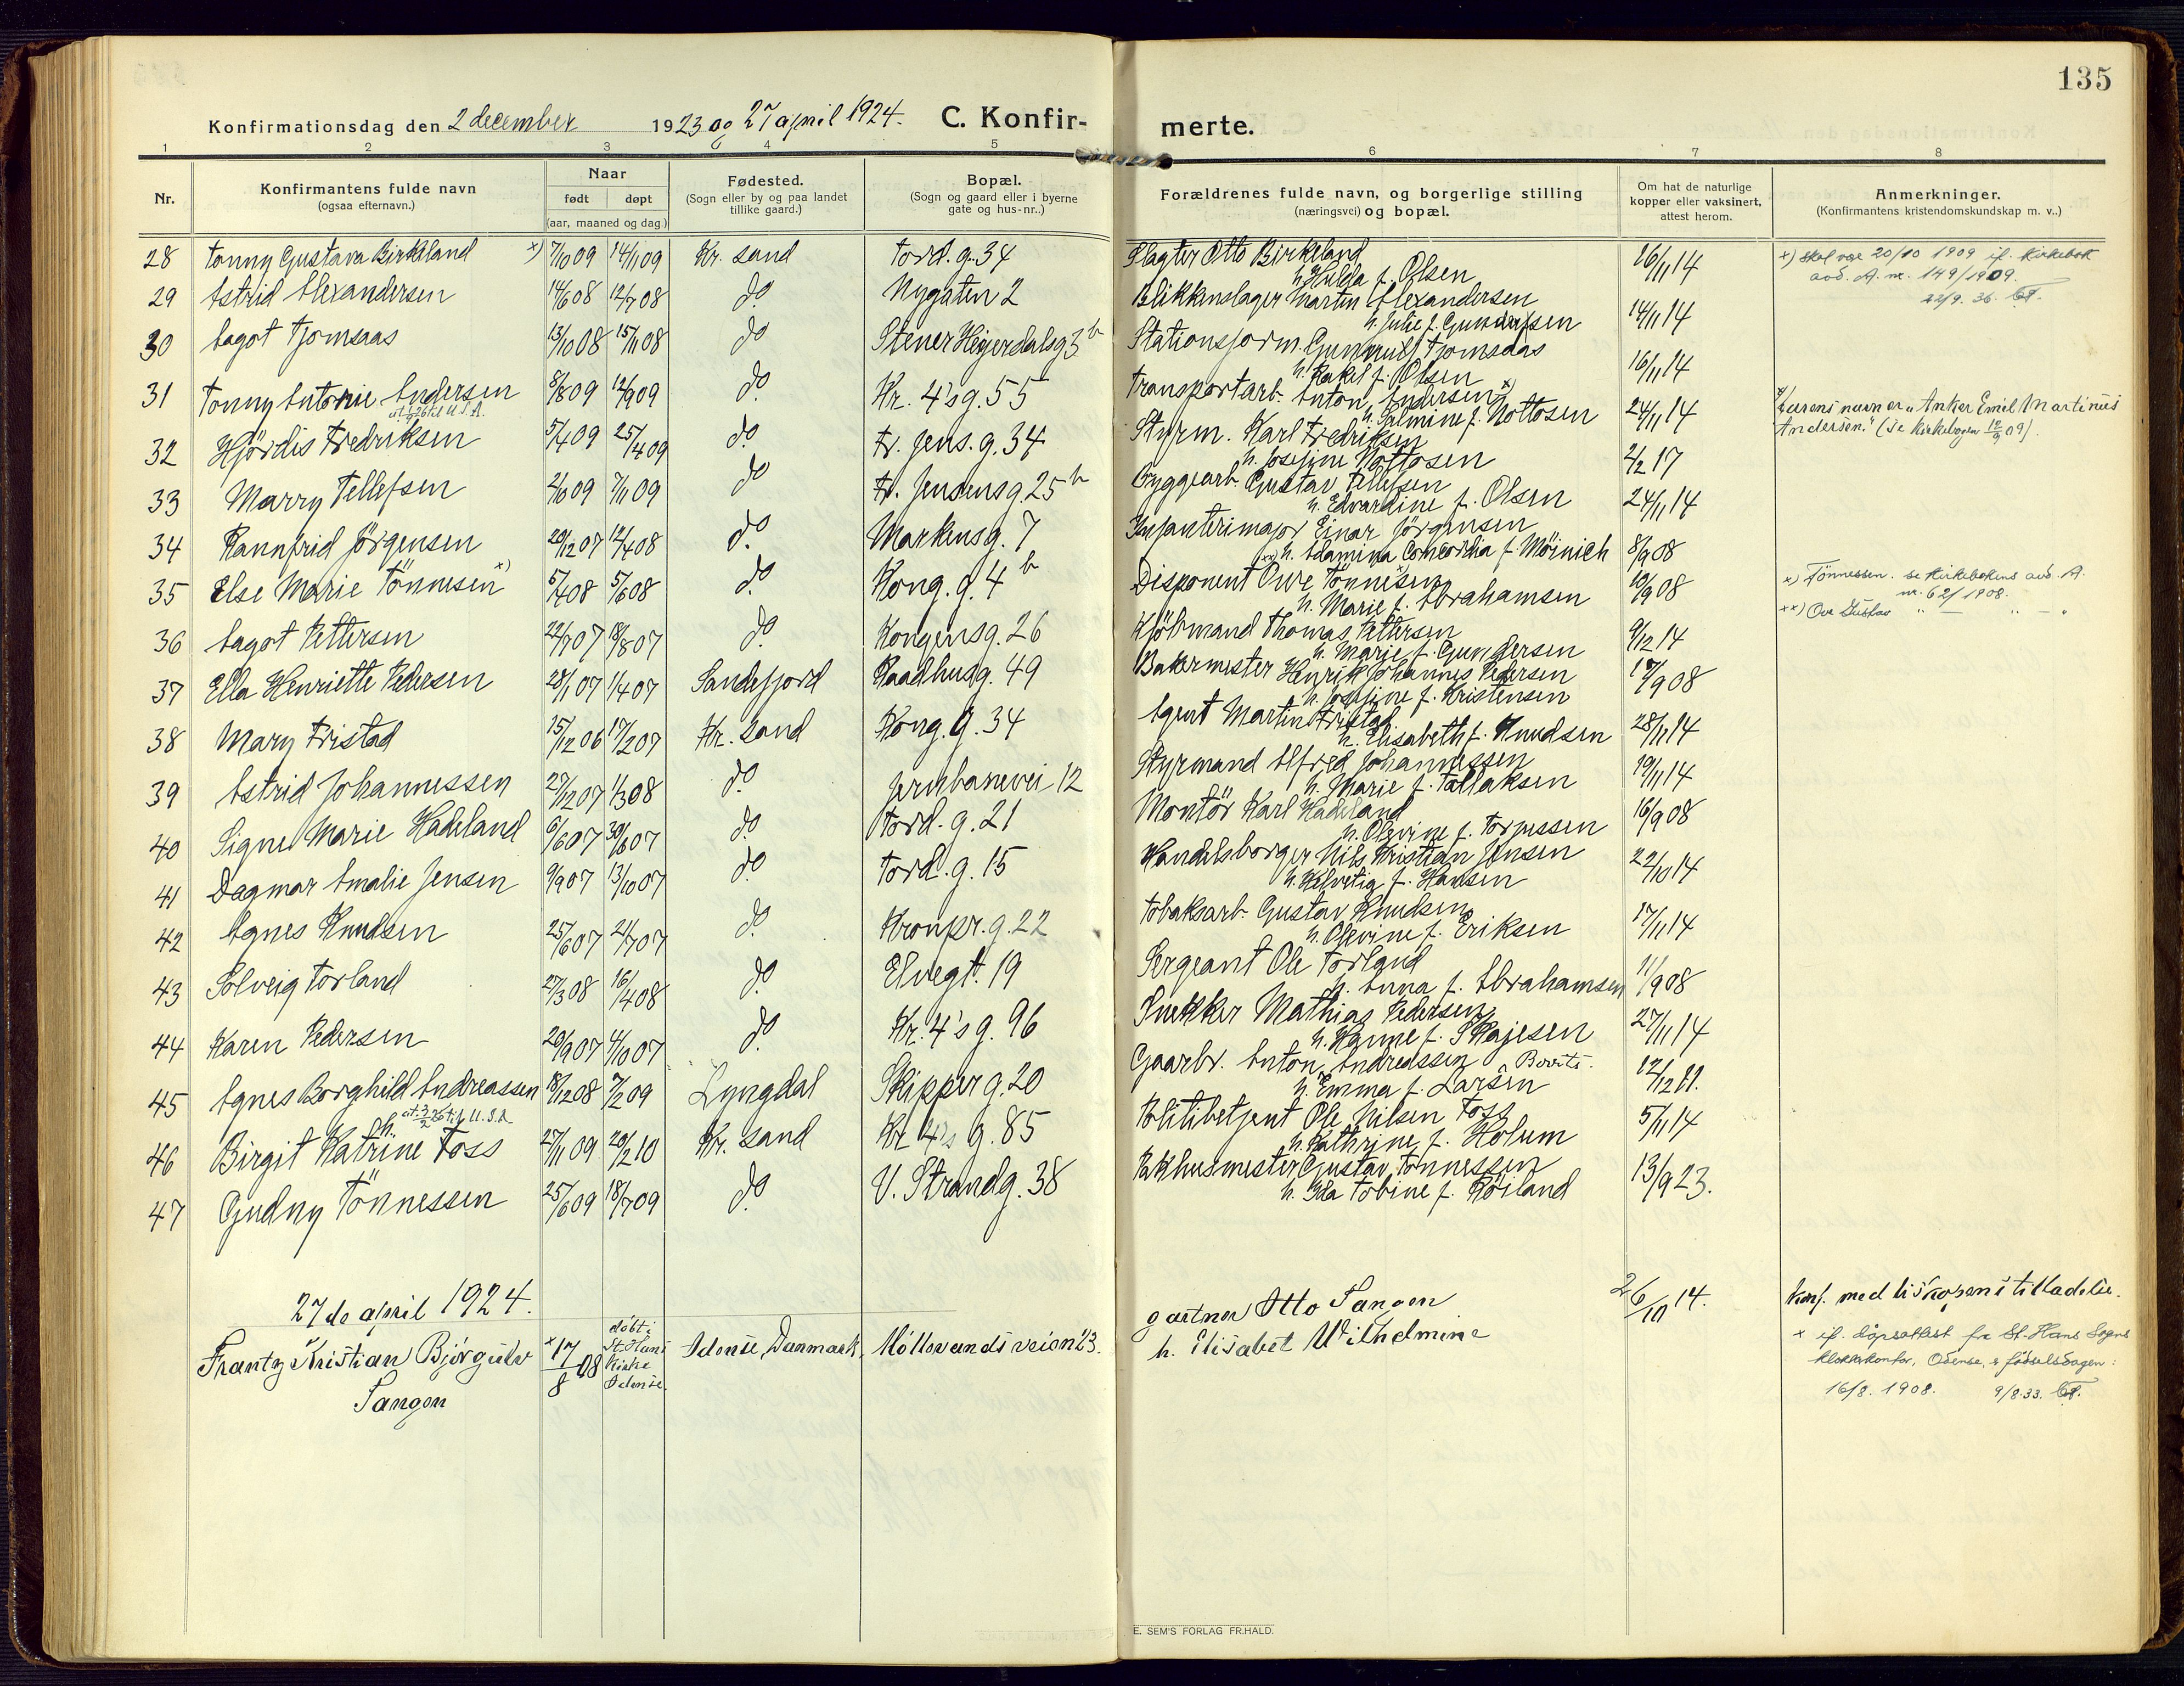 135
Konfirmationsdag den 2 december 1923 og 27 april 1924. C. Konfir-
merte.
1 2 3 4 5 6 7 8
Nr.
Konfirmantens fulde navn
(ogsaa efternavn.)
Naar
født døpt
(aar, maaned og dag.)
Fødested.
(Sogn eller by og paa landet
tillike gaard.)
Bopæl.
(Sogn og gaard eller i byerne
gate og hus-nr..)
Forældrenes fulde navn, og borgerlige stilling
(næringsvei) og bopæl.
Om hat de naturlige
kopper eller vaksinert,
attest herom.
Anmerkninger.
(Konfirmantens kristendomskundskap m. v..)
28 Tonny Gustava Birkeland x) 7/10 09 14/11 09 Kr. sand Tord. g. 34 Slagter Otto Birkeland 16/11 14 x) skal være 20/10 1909 if. kirkebok
h. Hulda f. Olsen avd. A nr. 149/1909.
22/9. 36.
29 Astrid Alexandersen 14/6 08 12/7 08 do Nygaten 2 Blikkenslager Martin Alexandersen 14/11 14
h. Julie f. Gundersen
30 Aagot Tjomsaas 13/10 08 15/11 08 do Stener Heyerdalsg 3 b Stationsform. Gunnulf Tjomsaas 16/11 14
h. Rakel f. Olsen
31 Tonny Antonie Andersen 8/8 09 12/9 09 do Kr. 4's g. 55 Transportarb. Anton Andersen x) 24/11 14 x) Farens navn er "Anker Emil Martinius
h. Palmine f. Nottosen Andersen." (se Kirkebogen 12/9 09).
32 Hjördis Fredriksen 5/4 09 25/4 09 do Fr. Jens. g. 34 Styrm. Karl Fredriksen 2/2 17
h. Josefine Nottosen
33 Marry Tellefsen 2/10 09 7/11 09 do Fr. Jensens g. 25 b Byggearb. Gustav Tellefsen 24/11 14
h. Edvardine f. Olsen
34 Rannfrid Jörgensen 20/12 07 12/4 08 do Markensg. 7 Infanterimajor Einar Jörgensen 8/9 08
h. Adamina Concordia f. Möinich
35 Else Marie Tönnesen x) 5/4 08 5/6 08 do Kong. g. 4 b Disponent Ove Tönnesen x) 10/9 08 x) Tönnessen. se kirkebokens avd. A.
h. Marie f. Abrahamsen nr. 62/1908.
xx) Ove Gustav " — " — "
36 Aagot Pettersen 22/7 07 18/8 07 do Kongensg. 26 Kjöbmand Thomas Pettersen 9/12 14
h. Marie f. Gundersen
37 Ella Henriette Pedersen 28/1 07 1/4 07 Sandefjord Raadhusg. 49 Bakermester Henrik Johannes Pedersen 17/9 08
h. Josefine f. Kristensen
38 Mary Fristad 15/12 06 17/2 07 Kr. sand Kong. g. 34 Agent Martin Fristad 28/11 14
h. Elisabeth f. Knudsen
39 Astrid Johannessen 27/12 07 1/3 08 do Jernbanevei 12 Styrmand Alfred Johannessen 19/11 14
h. Marie f. Tallaksen
40 Signe Marie Hadeland 6/6 07 30/6 07 do Tord. g. 21 Montör Karl Hadeland 16/9 08
h. Olevine f. Torjussen
41 Dagmar Amalie Jensen 9/9 07 13/10 07 do Tord. g. 15 Handelsborger Nils Kristian Jensen 22/10 14
h. Helvetia f. Hansen
42 Agnes Knudsen 25/6 07 21/7 07 do Kronpr. g. 22 Tobaksarb. Gustav Knudsen 17/11 14
h. Olevine f. Eriksen
43 Solveig Torland 27/3 08 16/4 08 do Elvegt. 19 Sergeant Ole Torland 11/9 08
h. Anna f. Abrahamsen
44 Karen Pedersen 20/9 07 4/10 07 do Kr. 4's g. 96 Snekker Mathias Pedersen 27/11 14
h. Hanne f. Skajesen
45 Agnes Borghild Andreassen 18/12 08 7/2 09 Lyngdal Skipper g. 20 Gaarbr. Anton Andreassen 12/12 11.
h. Emma f. Larsen
46 Birgit Katrine Foss 27/11 09 20/2 10 Kr. sand Kr 4's g. 85 Politibetjent Ole Nilsen Foss 5/11 14
h. Kathrine f. Holum
47 Gudny Tönnessen 25/6 09 18/7 09 do V. Strandg. 38 Pakhusmester Gustav Tönnessen 13/9 23.
h. Ida Tobine f. Röiland
27de april 1924.
Frantz Kristian Björgulv x 17/8 08 döbt i St. Hans Kirke Odense. Odense, Danmark, Möllevandsveien 23. gartner Otto Tangen 26/10 14. Konf. med biskopens tilladelse.
Tangen h. Elisabet Wilhelmine x if. dåpsattest fra St. Hans Sogns
klokkerkontor, Odense, er fødselsdagen:
16/8. 1908. 9/8.33.
E. SEM'S FORLAG FR.HALD.